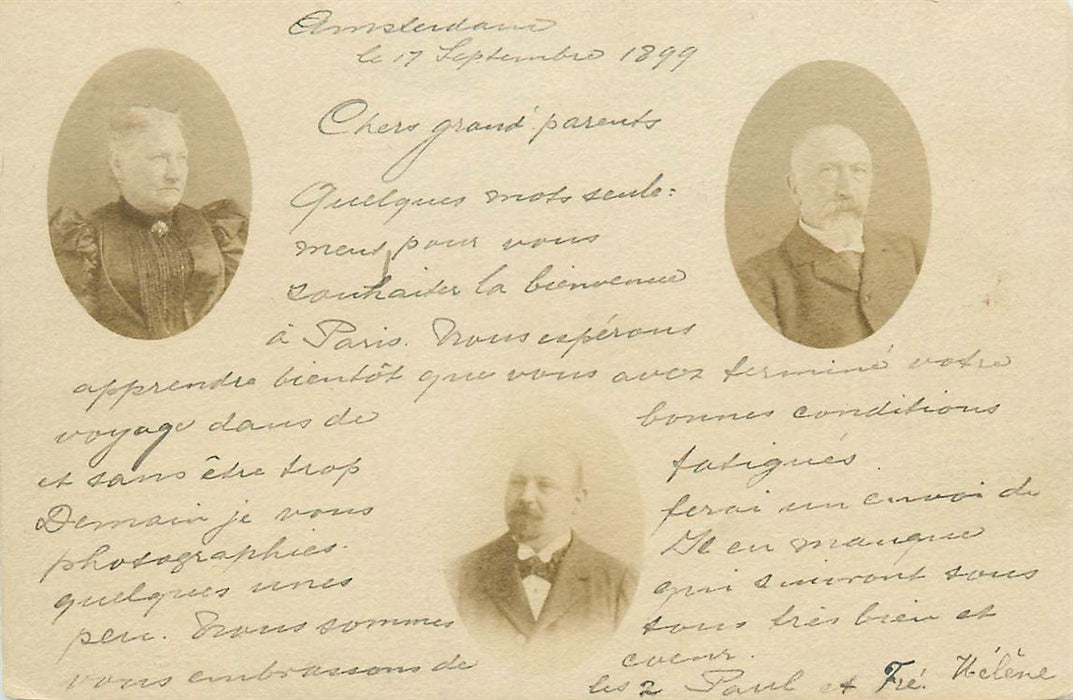 Amsterdam
le 17 Septembre 1899
Chers grand' parents
Quelques mots seule-
ment pour vous
souhaiter la bienvenue
à Paris. Nous espérons
apprendre bientôt que vous avez terminé votre
voyage dans de bonnes conditions
et sans être trop fatigués.
Demain je vous ferai un envoi de
photographies. Il en manque
quelques unes qui suivront sous
peu. Nous sommes tous très bien et
vous embrassons de coeur.
les 2 Paul et Fré. Hélène